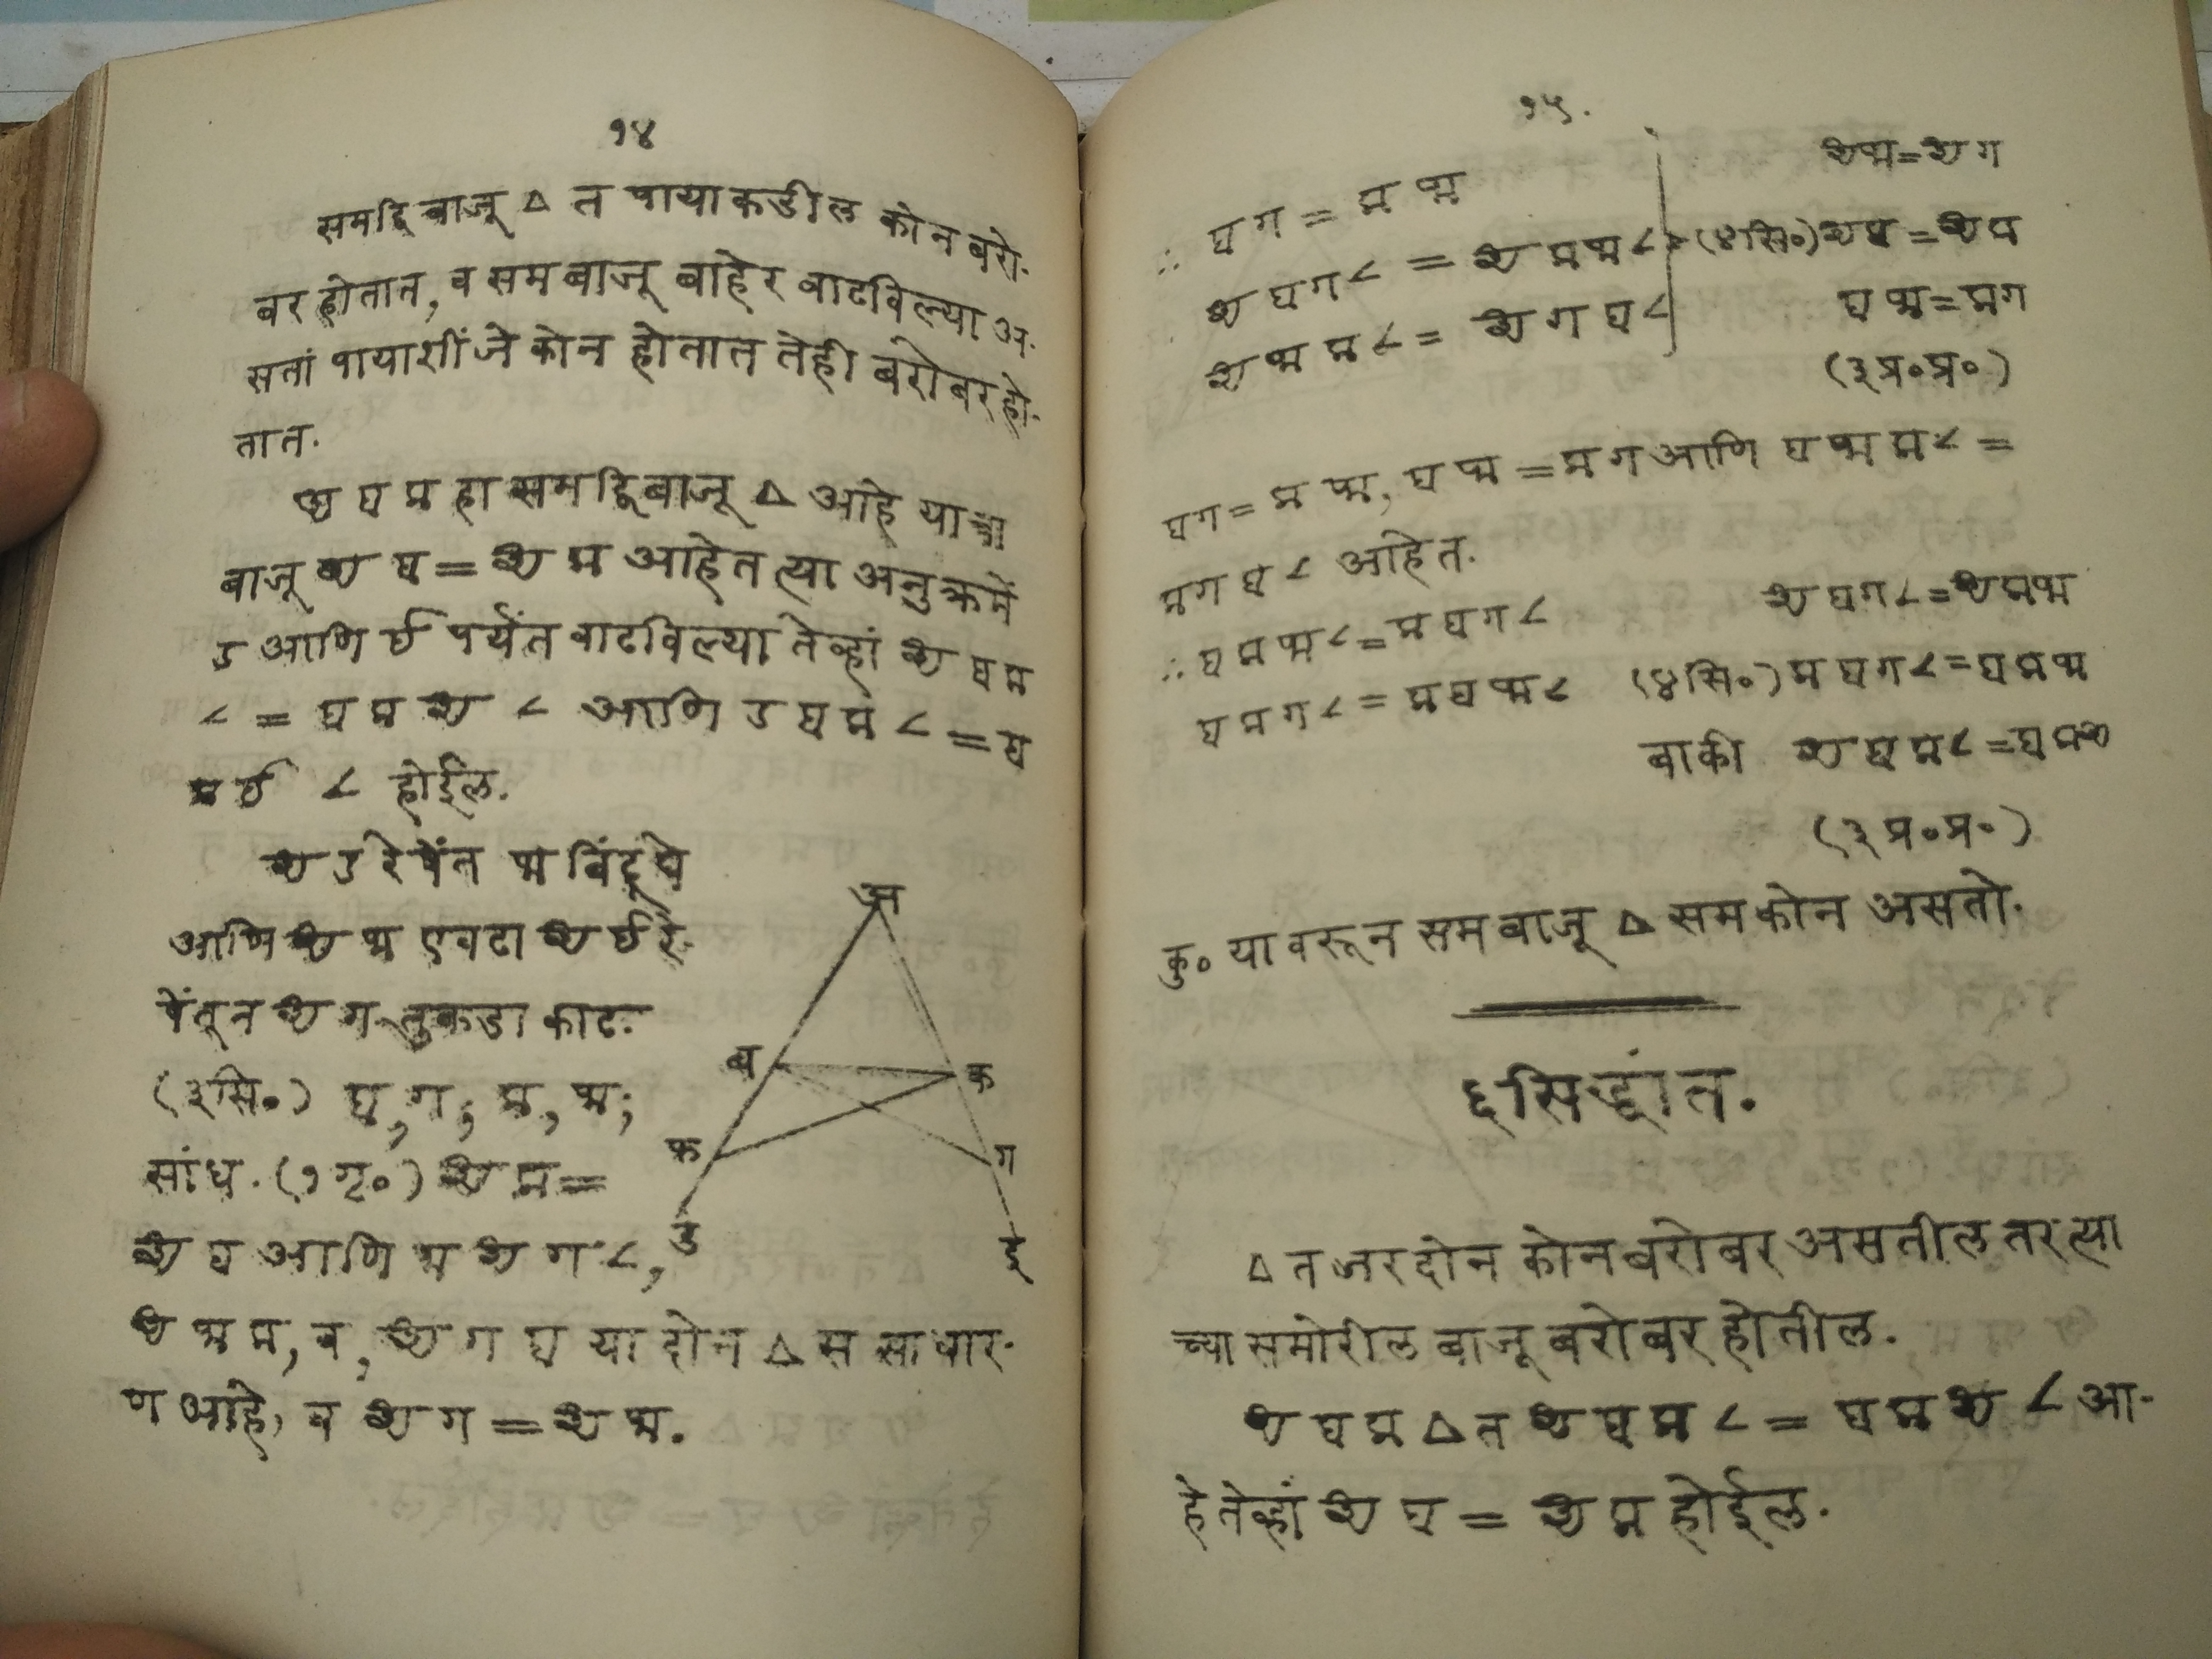 १४
समद्विबाजू △ त पायाकडील कोन बरो-
बर होतात, व समबाजू बाहेर वाढविल्या अ-
सतां पायाशीं जे कोन होतात तेही बरोबर हो-
तात.
अ ब क हा समद्विबाजू △ आहे याच्या
बाजू अ ब = अ क आहेत त्या अनुक्रमें
ड आणि ई पर्यंत वाढविल्या तेव्हां अ ब क
∠ = ब क अ ∠ आणि ड ब क ∠ = ब
क ई ∠ होईल.
अ ड रेषेंत फ बिंदू घे
आणि अ फ एवढा अ ई रे-
षेंतून अ ग तुकडा काढ.
(३सि०) ब, ग; क, फ;
सांध. (१गृ०) अ क =
अ ब आणि फ अ ग ∠,
अ फ क, व, अ ग ब या दोन △ स साधार-
ण आहे, व अ ग = अ फ.
अ
ब
क
फ
ग
ड
ई
१५.
∴ ब ग = क फ
अ ब ग ∠ = अ क फ ∠
अ फ क ∠ = अ ग ब ∠
अ फ = अ ग
(४सि०) अ ब = अ क
ब फ = क ग
(३प्र०प्र०)
ब ग = क फ, ब फ = क ग आणि ब फ क ∠ =
क ग ब ∠ आहेत.
∴ ब क फ ∠ = क ब ग ∠
ब क ग ∠ = क ब फ ∠
अ ब ग ∠ = अ क फ
(४सि०) क ब ग ∠ = ब क फ
बाकी अ ब क ∠ = ब क अ
(३प्र०प्र०)
कृ० यावरून समबाजू △ समकोन असतो.
६ सिद्धांत.
△ त जर दोन कोन बरोबर असतील तर त्या
च्या समोरील बाजू बरोबर होतील.
अ ब क △ त अ ब क ∠ = ब क अ ∠ आ-
हे तेव्हां अ ब = अ क होईल.